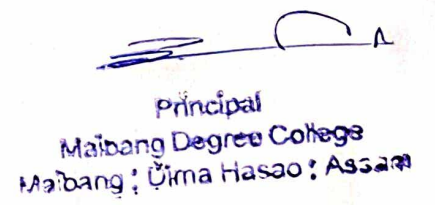 Principal
Maibang Degree College
Maibang : Dima Hasao : Assam